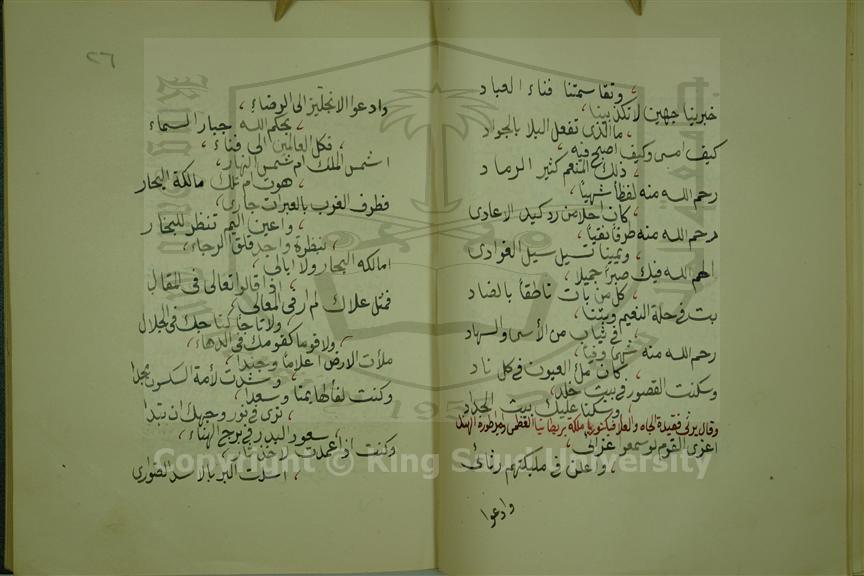 وتقاسمتنا فناء العباد
خبرينا جهين لا تكذبينا
ما الذي تفعل البلا بالجواد
كيف امسى وكيف اصبح فيه
ذلك المنعم كثير الرماد
رحم الله منه لفظاً شهياً
كان حلا من رد كيد الاعادى
رحم الله منه طرفا نقيا
ويمينا تسيل سيل الغوادى
الهم الله فيك صبرا جميلا
كل من بات ناطقا بالضاد
بت في حلة النعيم وبتنا
في ثياب من الأسى والسهاد
رحم الله منه شهما وفيا
كان ملأ العيون في كل ناد
وسكنت القصور في بيت خلد
وسكنا عليك بيت الحداد
وقال يرثى فقيدة الجاه والعلا فيكتوريا ملكة بريطانيا العظمى وامبرطورة الهند
اعزى القوم لو سمعو عزائى
واعلن في مليكتهم رثائى
وادعوا
٢٦
وادعوا الانجليز الى الرضاء
بحكم الله جبار السماء
فكل العالمين الى فناء
اشمس الملك ام شمس النهار
هوت ام تلك مالكة البحار
فطرف الغرب بالعبرات جارى
واعين اليم تنظر للبخار
بنظرة واجد قلق الرجاء
امالكه البحار ولا ابالى
اذا قالوا تغالى في المقال
فمثل علاك لم ار في المعالى
ولا تاجا كتاجك في الجلال
ولا قوما كقومك في الدهاء
ملأت الارض اعلاما وجندا
وشدت لأمة السكسون مجدا
وكنت لفألها يمنا وسعدا
نرى في نور وجهك ان تبدا
سعود البدر في برج الهناء
وكنت اذا عمدت لاخذ ثار
اسلت البر بالاسد الضوارى
Copyright © King Saud University
1957